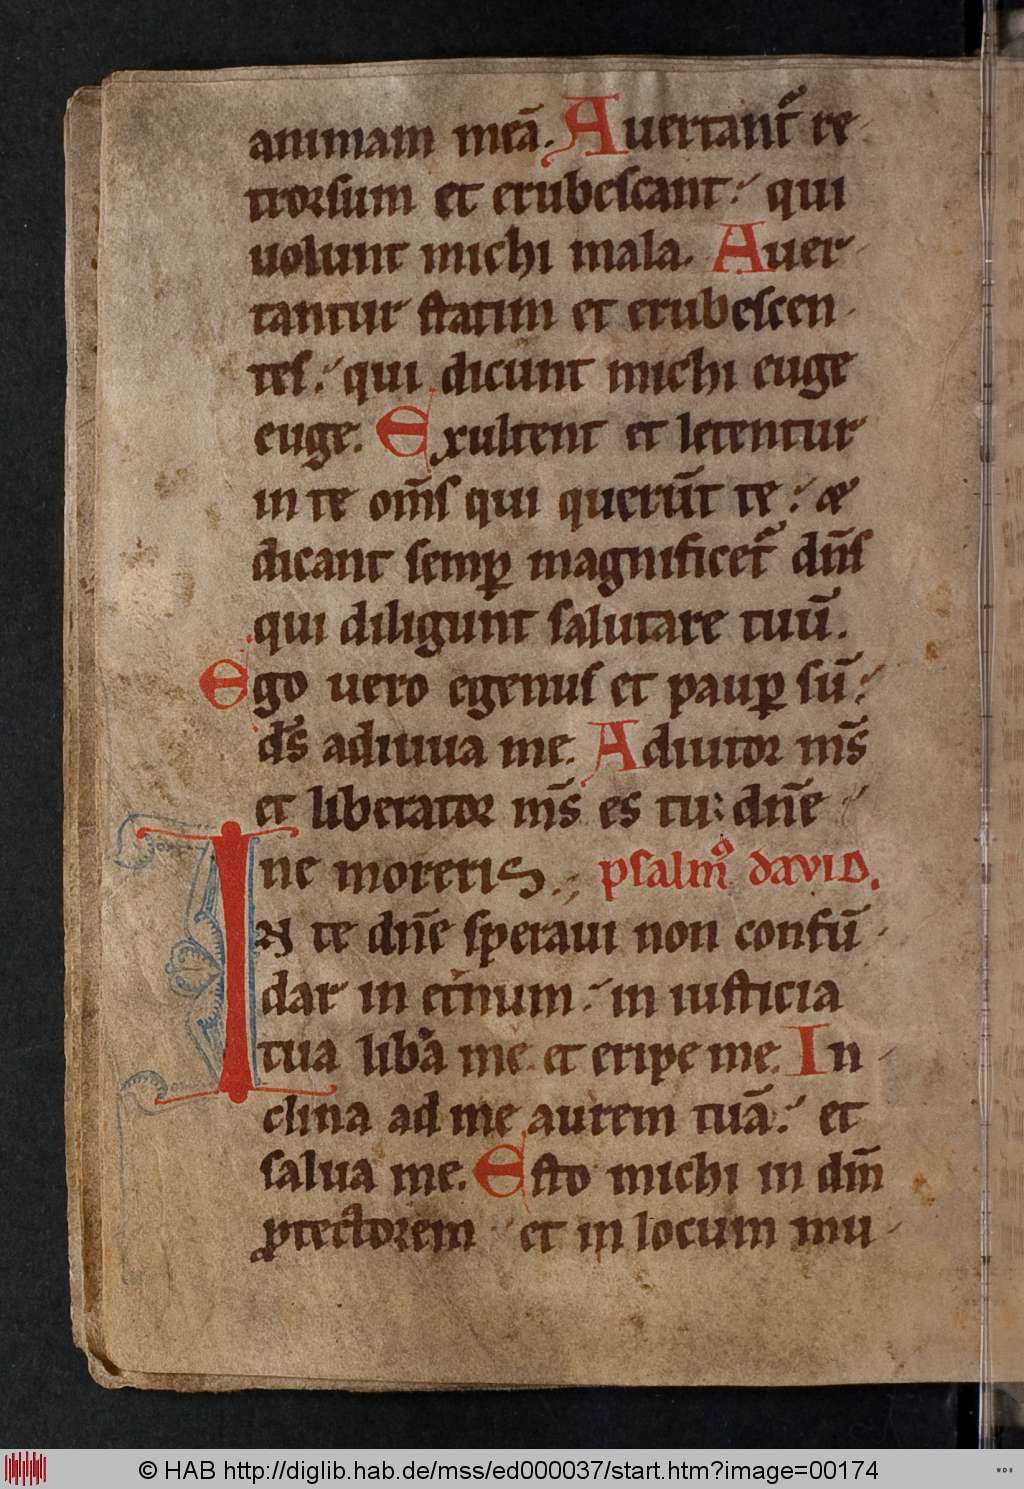 animam meā. Auertant᷑ re
trorsum et erubescant: qui
uolunt michi mala. Auer
tantur statim et erubescen
tes: qui dicunt michi euge
euge. Exultent et letentur
in te om̄s qui querūt te: &
dicant semꝑ magnificet᷑ dn̄s
qui diligunt salutare tuū.
Ego uero egenus et paupꝑ sū:
ds̄ adiuua me. Adiutor ms̄
et liberator ms̄ es tu: dn̄e
ne moreris. psalmꝰ david.
IN te dn̄e speraui non confū
dar in et̄num: in iusticia
tua lib̄a me et eripe me. In
clina ad me aurem tuā: et
salua me. Esto michi in dm̄
ꝓtectorem et in locum mu
© HAB http://diglib.hab.de/mss/ed000037/start.htm?image=00174